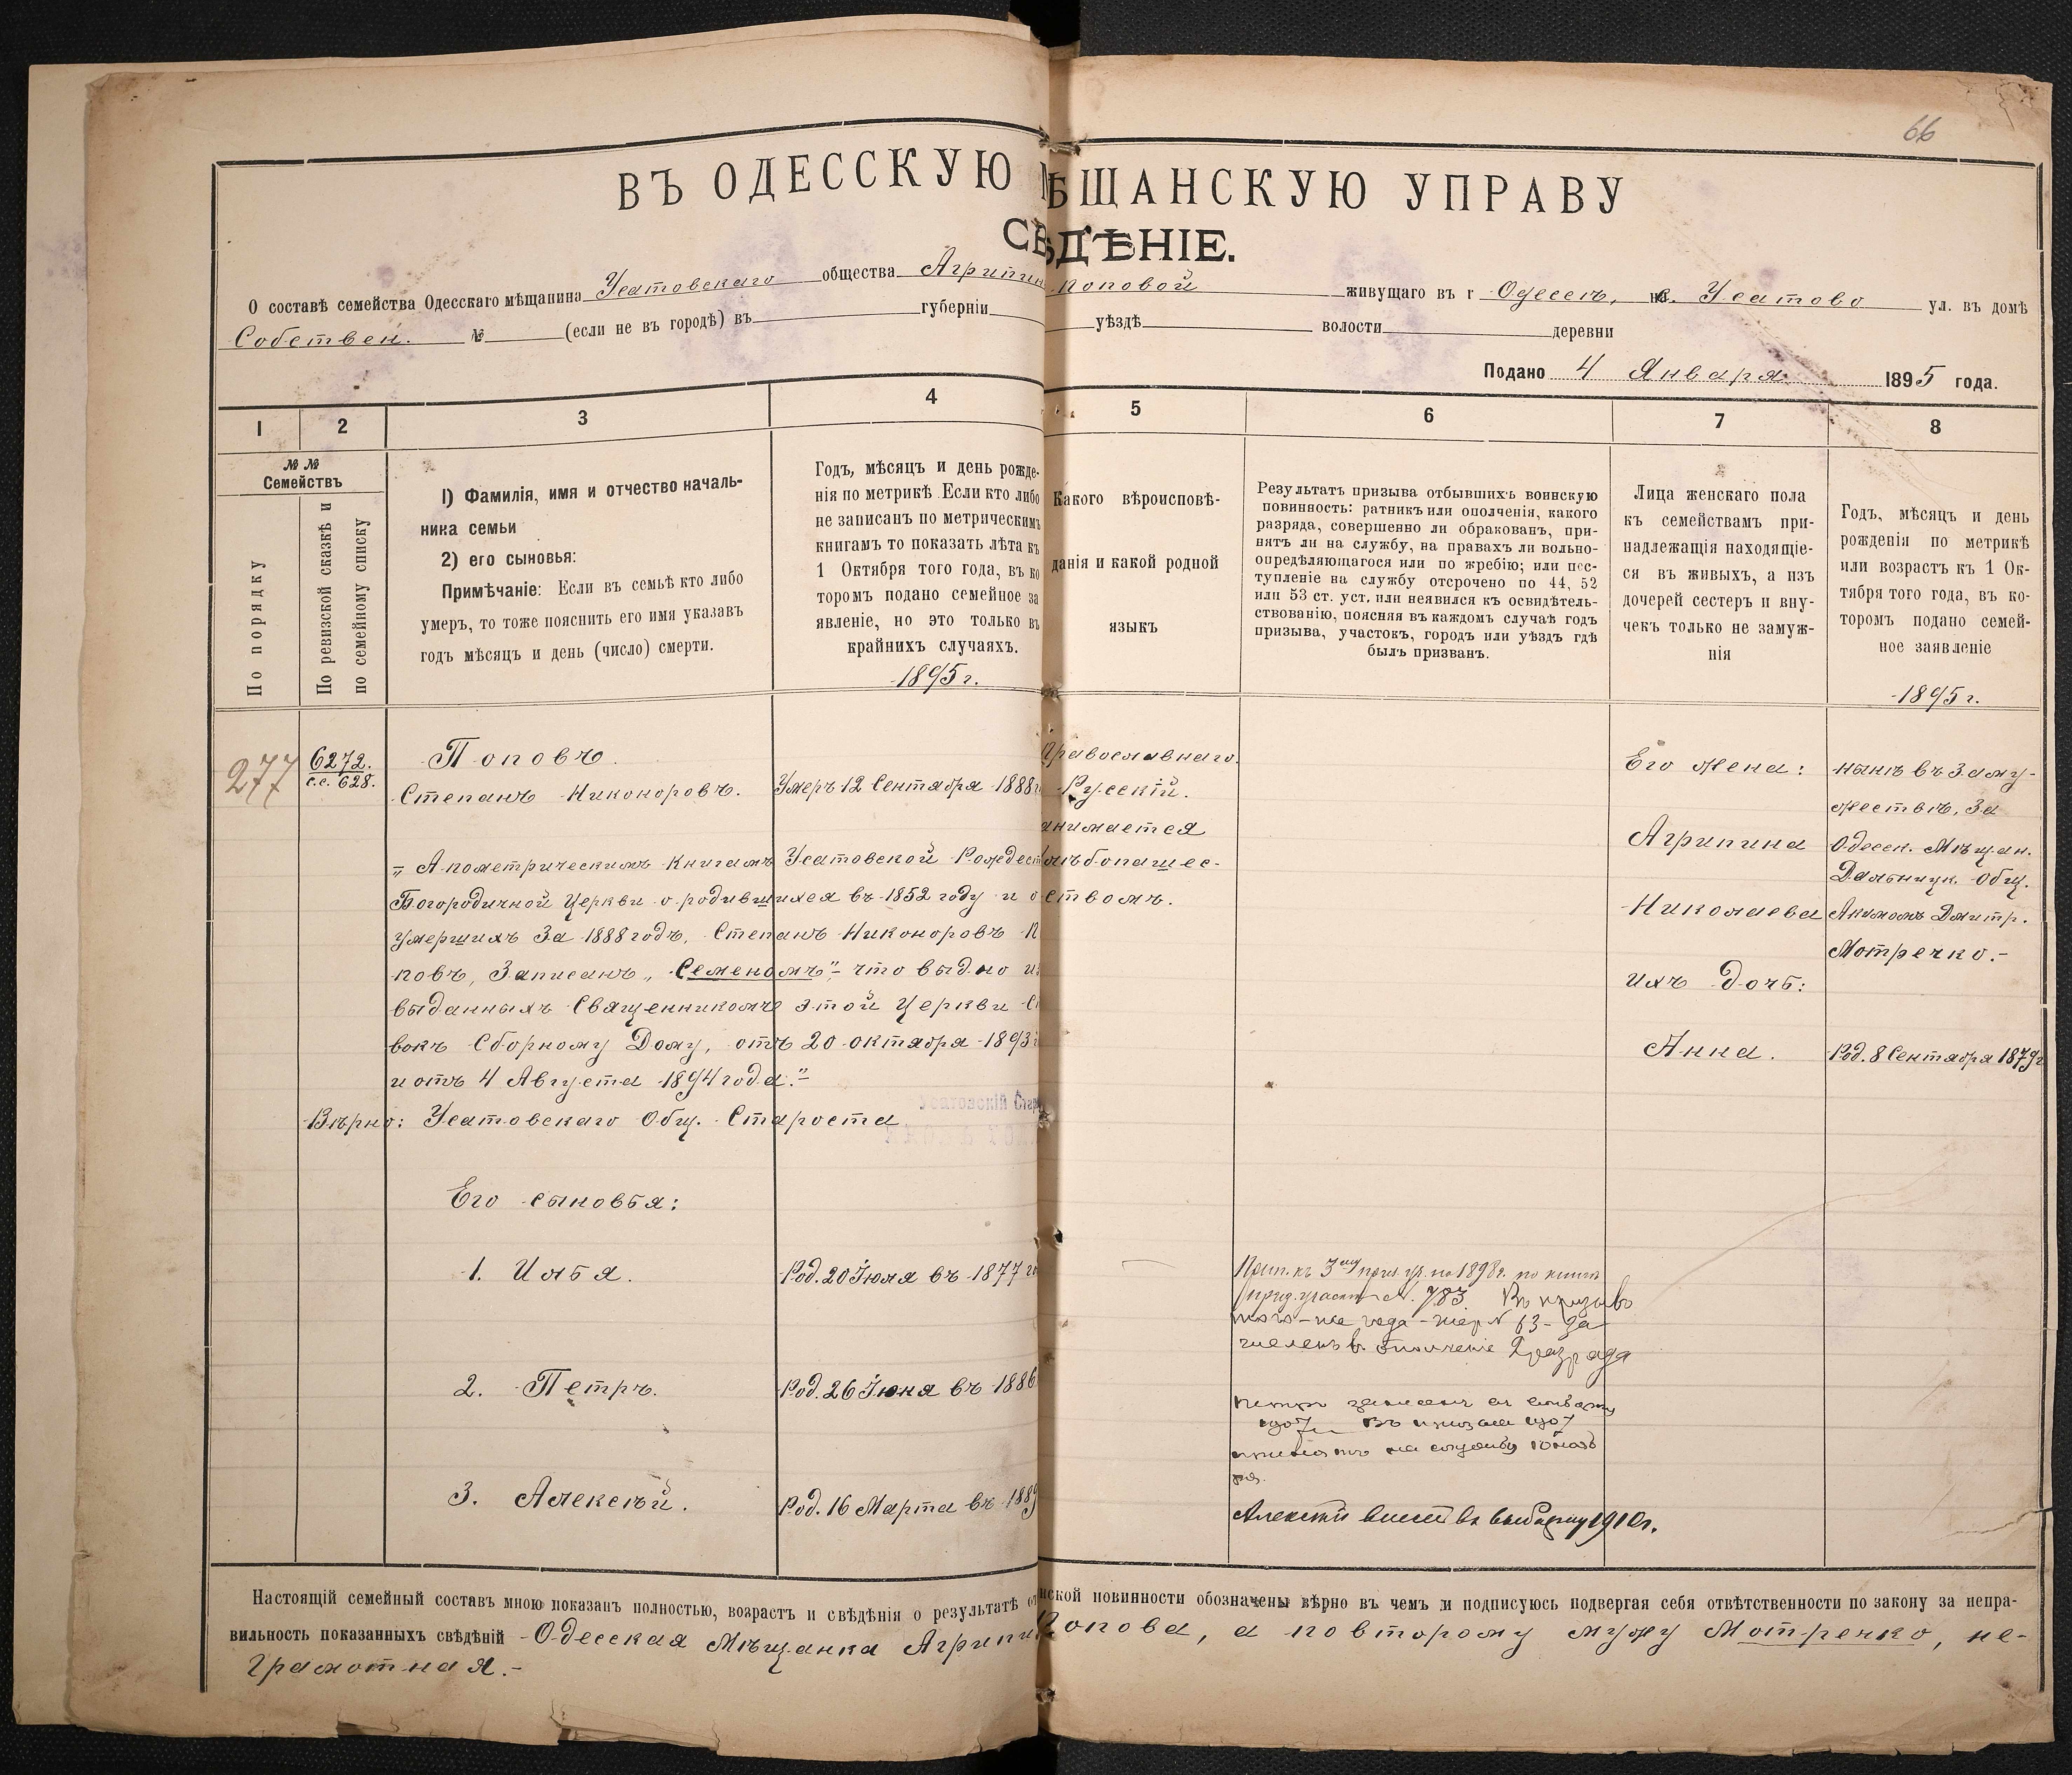 66
ВЪ ОДЕССКУЮ МѢЩАНСКУЮ УПРАВУ
СВѢДѢНІЕ.
О составѣ семейства Одесскаго мѣщанина Усатовскаго общества Агрипин Поповой живущаго въ г Одессѣ, с. Усатово ул. въ домѣ
Собствен. № (если не въ городѣ) въ губерніи уѣздѣ волости деревни
Подано 4 Января 1895 года.
1 2 3 4 5 6 7 8
№ №
Семействъ
По порядку
По ревизской сказкѣ и
по семейному списку
1) Фамилія, имя и отчество началь-
ника семьи
2) его сыновья:
Примѣчаніе: Если въ семьѣ кто либо
умеръ, то тоже пояснить его имя указавъ
годъ мѣсяцъ и день (число) смерти.
Годъ, мѣсяцъ и день рожде-
нія по метрикѣ. Если кто либо
не записанъ по метрическимъ
книгамъ то показать лѣта къ
1 Октября того года, въ ко
торомъ подано семейное за
явленіе, но это только въ
крайнихъ случаяхъ.
1895 г.
Какого вѣроисповѣ-
данія и какой родной
языкъ
Результатъ призыва отбывшихъ воинскую
повинность: ратникъ или ополченія, какого
разряда, совершенно ли обракованъ, при-
нятъ ли на службу, на правахъ ли вольно-
опредѣляющагося или по жребію; или пос-
тупленіе на службу отсрочено по 44, 52
или 53 ст. уст. или неявился къ освидѣтель-
ствованію, поясняя въ каждомъ случаѣ годъ
призыва, участокъ, городъ или уѣздъ гдѣ
былъ призванъ.
Лица женскаго пола
къ семействамъ при-
надлежащія находящіе-
ся въ живыхъ, а изъ
дочерей сестеръ и вну-
чекъ только не замуж-
нія
Годъ, мѣсяцъ и день
рожденія по метрикѣ
или возрастъ къ 1 Ок-
тября того года, въ ко-
торомъ подано семей-
ное заявленіе
1895 г.
277
6272.
с.с. 628.
Поповъ.
Степанъ Никоноровъ.
Умеръ 12 Сентября 1888 г
„ А по метрическимъ книгамъ Усатовской Рождест
Богородичной Церкви о родившихся въ 1852 году и о
умершихъ за 1888 годъ, Степанъ Никоноровъ П
повъ, записанъ „Семеномъ" что выдно и
выданныхъ Священникомъ этой Церкви С
вокъ Сборному Дому, отъ 20 октября 1893
и отъ 4 Августа 1894 года."
Вѣрно: Усатовскаго Общ. Староста
Усатовскій Стар
Его сыновья:
1. Илья.
Род. 20 Іюля въ 1877 го
2. Петръ.
Род. 26 Іюня въ 1886
3. Алексѣй.
Род. 16 Марта въ 1889
Православнаго.
Русскій.
анимается
лѣбопашес-
ствомъ.
Прип. къ 3му приз. уч. на 1898 г. по книгѣ
призыв участ № 783. Въ призывъ
того-же года жер № 63 - За
численъ в ополченіе 2 разряда
1907 Въ призывъ 1907
принятъ на службу
Алексѣй внесенъ въ 1910 г.
Его жена:
Агрипина
Николаева
Ихъ дочь:
Анна.
нынѣ въ заму-
жествѣ, за
Одесск. Мѣщан.
Дальницк. Общ.
Акимомъ Дмитр.
Мотречко.-
Род. 8 Сентября 1879 г
Настоящій семейный составъ мною показанъ полностью, возрастъ и свѣдѣнія о результатѣ от нской повинности обозначены вѣрно въ чемъ и подписуюсь подвергая себя отвѣтственности по закону за непра-
вильность показанныхъ свѣдѣній Одесская Мѣщанка Агрипи Попова, а по второму мужу Мотречко, не-
грамотная.-